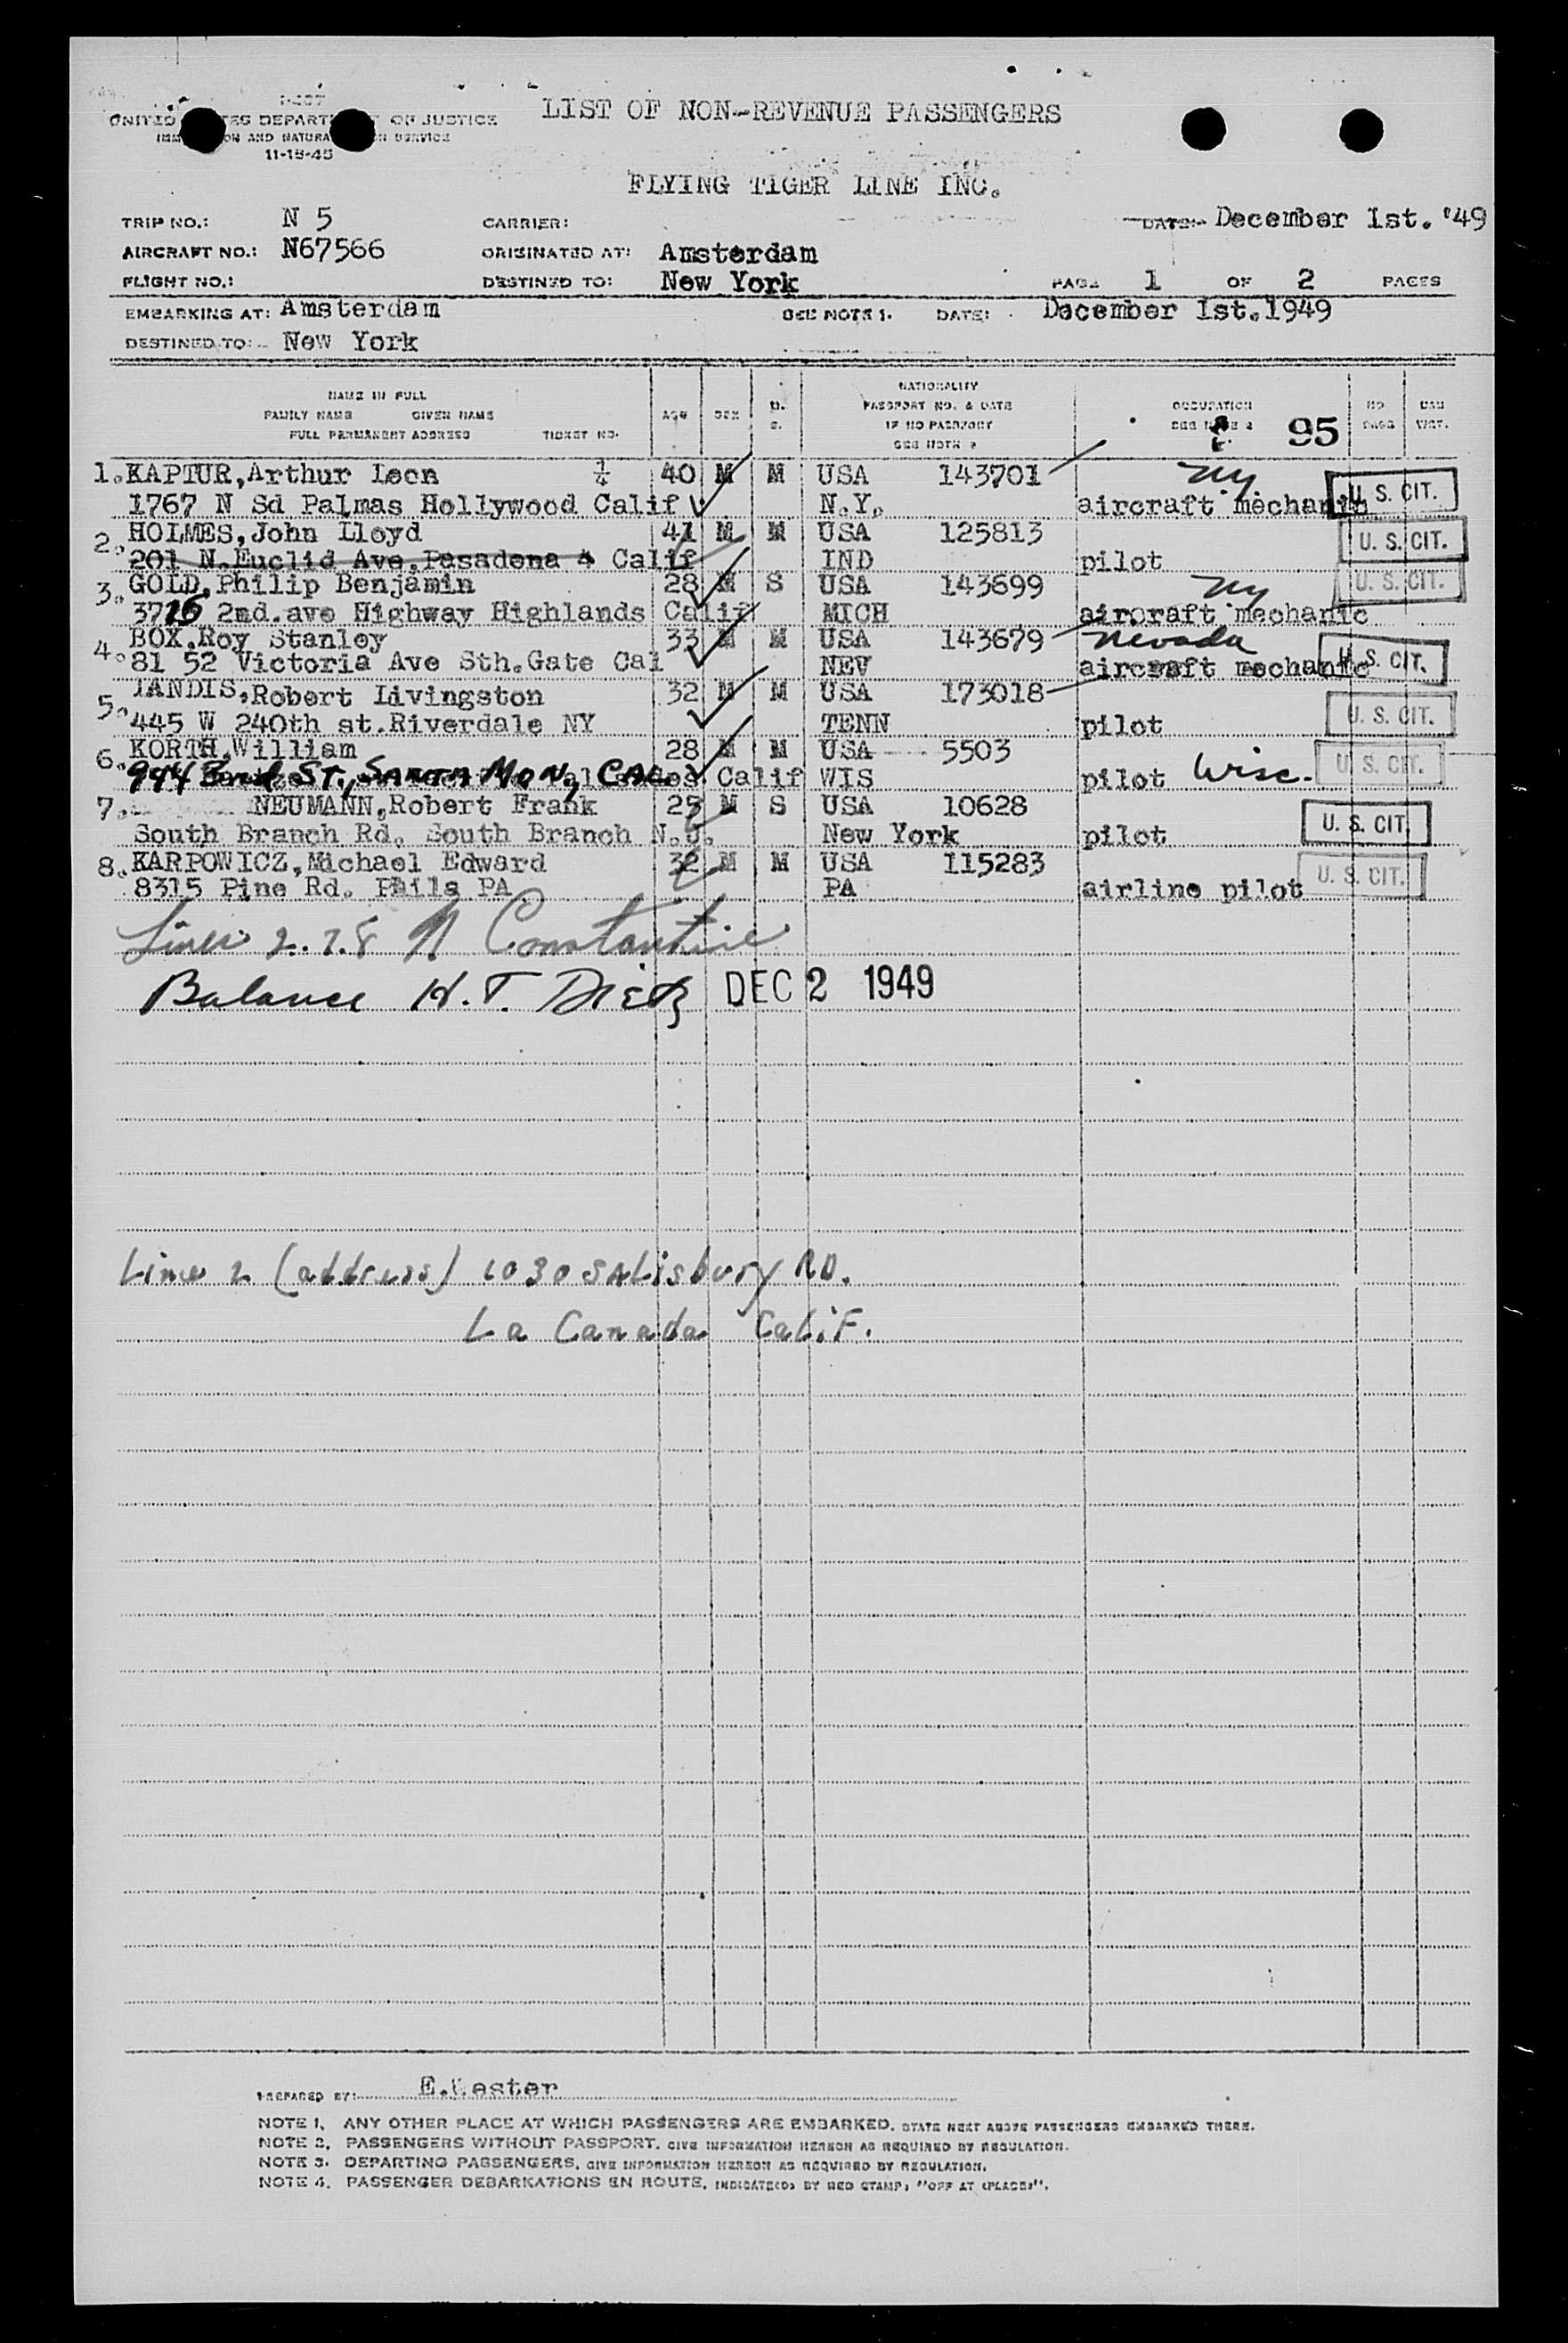 I-207
UNITED STATES DEPARTMENT OF JUSTICE
LIST OF NON-REVENUE PASSENGERS
IMMIGRATION AND NATURALIZATION SERVICE
11-15-45
FLYING TIGER LINE INC.
TRIP NO.: N 5 CARRIER: DATE: December 1st. '49
AIRCRAFT NO.: N67566 ORIGINATED AT: Amsterdam
FLIGHT NO.: DESTINED TO: New York PAGE 1 OF 2 PAGES
EMBARKING AT: Amsterdam SEE NOTE 1. DATE: December 1st.1949
DESTINED TO: New York
NAME IN FULL
FAMILY NAME GIVEN NAME
FULL PERMANENT ADDRESS TICKET NO.
AGE SEX M. S.
NATIONALITY
PASSPORT NO. & DATE
IF NO PASSPORT
SEE NOTE 2
OCCUPATION
SEE NOTE 2 95
NO. BAGS BAG WGT.
1. KAPTUR,Arthur Leon ¼ 40 M M USA 143701 NY
1767 N Sd Palmas Hollywood Calif N.Y. aircraft mechanic U. S. CIT.
2. HOLMES,John Lloyd 41 M M USA 125813
201 N.Euclid Ave,Pasadena 4 Calif IND pilot U. S. CIT.
3. GOLD,Philip Benjamin 28 M S USA 143699 NY
3716 2nd.ave Highway Highlands Calif MICH aircraft mechanic U. S. CIT.
4. BOX,Roy Stanley 33 M M USA 143679 Nevada
81 52 Victoria Ave Sth.Gate Cal NEV aircraft mechanic U. S. CIT.
5. LANDIS,Robert Livingston 32 M M USA 173018
445 W 240th st.Riverdale NY TENN pilot U. S. CIT.
6. KORTH,William 28 M M USA 5503
944 3rd ST., SANTA MON, CAL. Calif WIS pilot Wisc. U. S. CIT.
7. NEUMANN,Robert Frank 25 M S USA 10628
South Branch Rd. South Branch N.J. New York pilot U. S. CIT.
8. KARPOWICZ,Michael Edward 32 M M USA 115283
8315 Pine Rd. Phila PA PA airline pilot U. S. CIT.
Lines 2.7.8 N Constantine
Balance H.T. Dietz DEC 2 1949
Line 2 (address) 1030 SALisbury RD.
La Canada CaLiF.
PREPARED BY: E.Kester
NOTE 1. ANY OTHER PLACE AT WHICH PASSENGERS ARE EMBARKED, STATE NEXT ABOVE PASSENGERS EMBARKED THERE.
NOTE 2. PASSENGERS WITHOUT PASSPORT, GIVE INFORMATION HEREON AS REQUIRED BY REGULATION.
NOTE 3. DEPARTING PASSENGERS, GIVE INFORMATION HEREON AS REQUIRED BY REGULATION.
NOTE 4. PASSENGER DEBARKATIONS EN ROUTE, INDICATE(D) BY RED STAMP: "OFF AT (PLACE)".